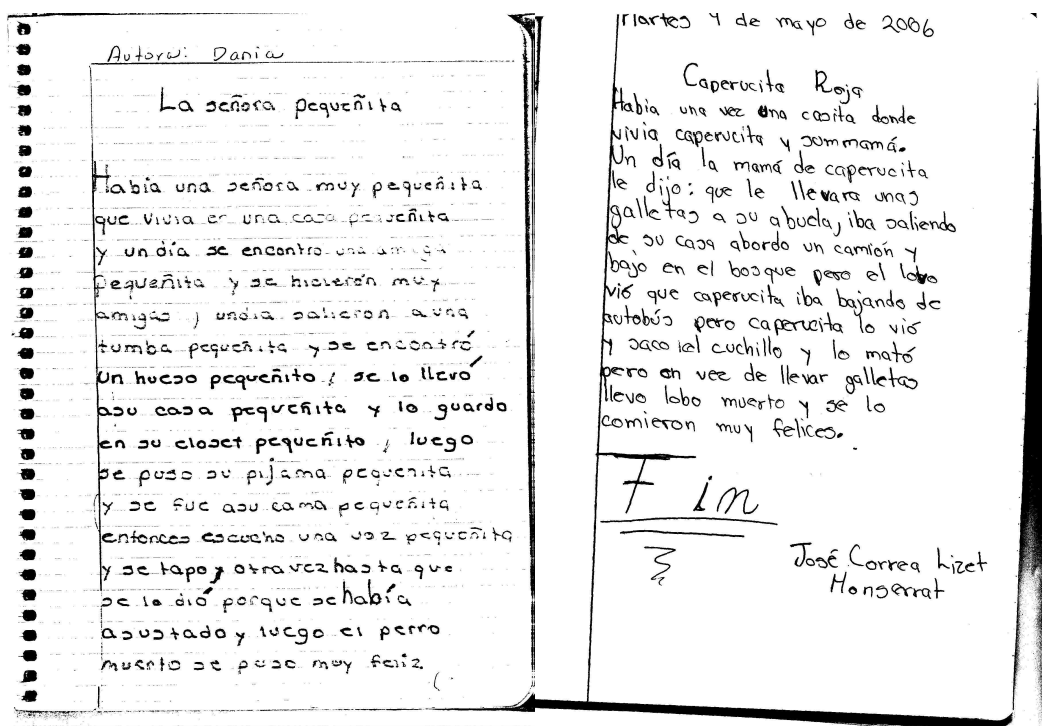 Autora: Dania
La señora pequeñita
Había una señora muy pequeñita
que vivia en una casa pequeñita
y un día se encontro una amiga
pequeñita y se hicierón muy
amigas, undia salieron a una
tumba pequeñita y se encontró
un hueso pequeñito, se lo llevó
asu casa pequeñita y lo guardo
en su closet pequeñito, luego
se puso su pijama pequeñita
y se fue asu cama pequeñita
entonces escucho una voz pequeñita
y se tapo y otra vez hasta que
se lo dió porque se había
asustado y luego el perro
muerto se puso muy feliz
Martes 4 de mayo de 2006
Caperucita Roja
Habia una vez una casita donde
vivia caperucita y summamá.
Un día la mamá de caperucita
le dijo: que le llevara unas
galletas a su abuela, iba saliendo
de su casa abordo un camión y
bajo en el bosque pero el lobo
vió que caperucita iba bajando de
autobús pero caperucita lo vió
y saco el cuchillo y lo mató
pero en vez de llevar galletas
llevo lobo muerto y se lo
comieron muy felices.
Fin
José Correa Lizet
Monserrat